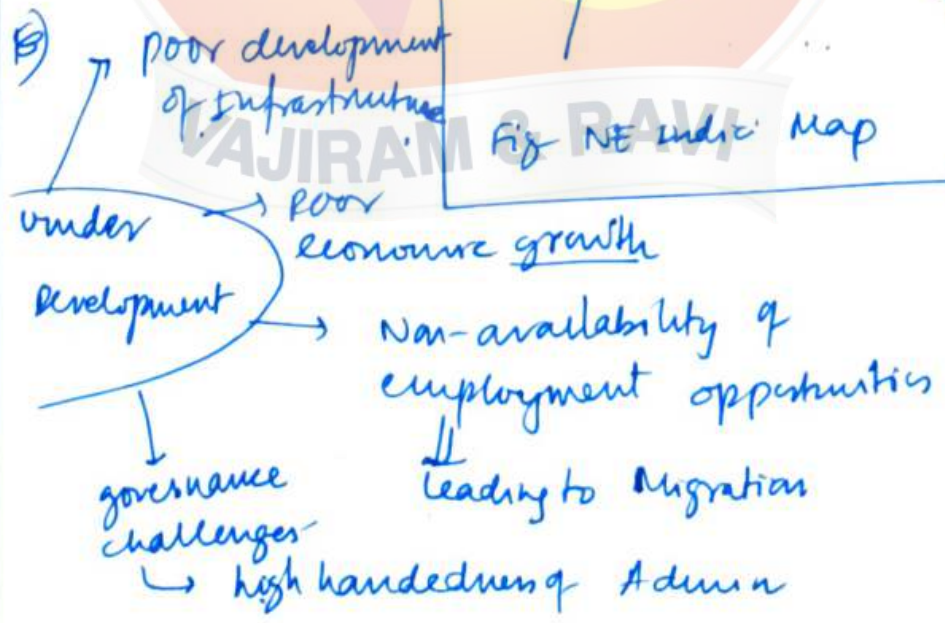 B)
Poor development
of Infrastructure
VAJIRAM & RAVI
Fig NE India Map
Under
Development
Poor
economic growth
Non-availability of
employment opportunities
leading to Migration
governance
challenges
high handedness of Admin